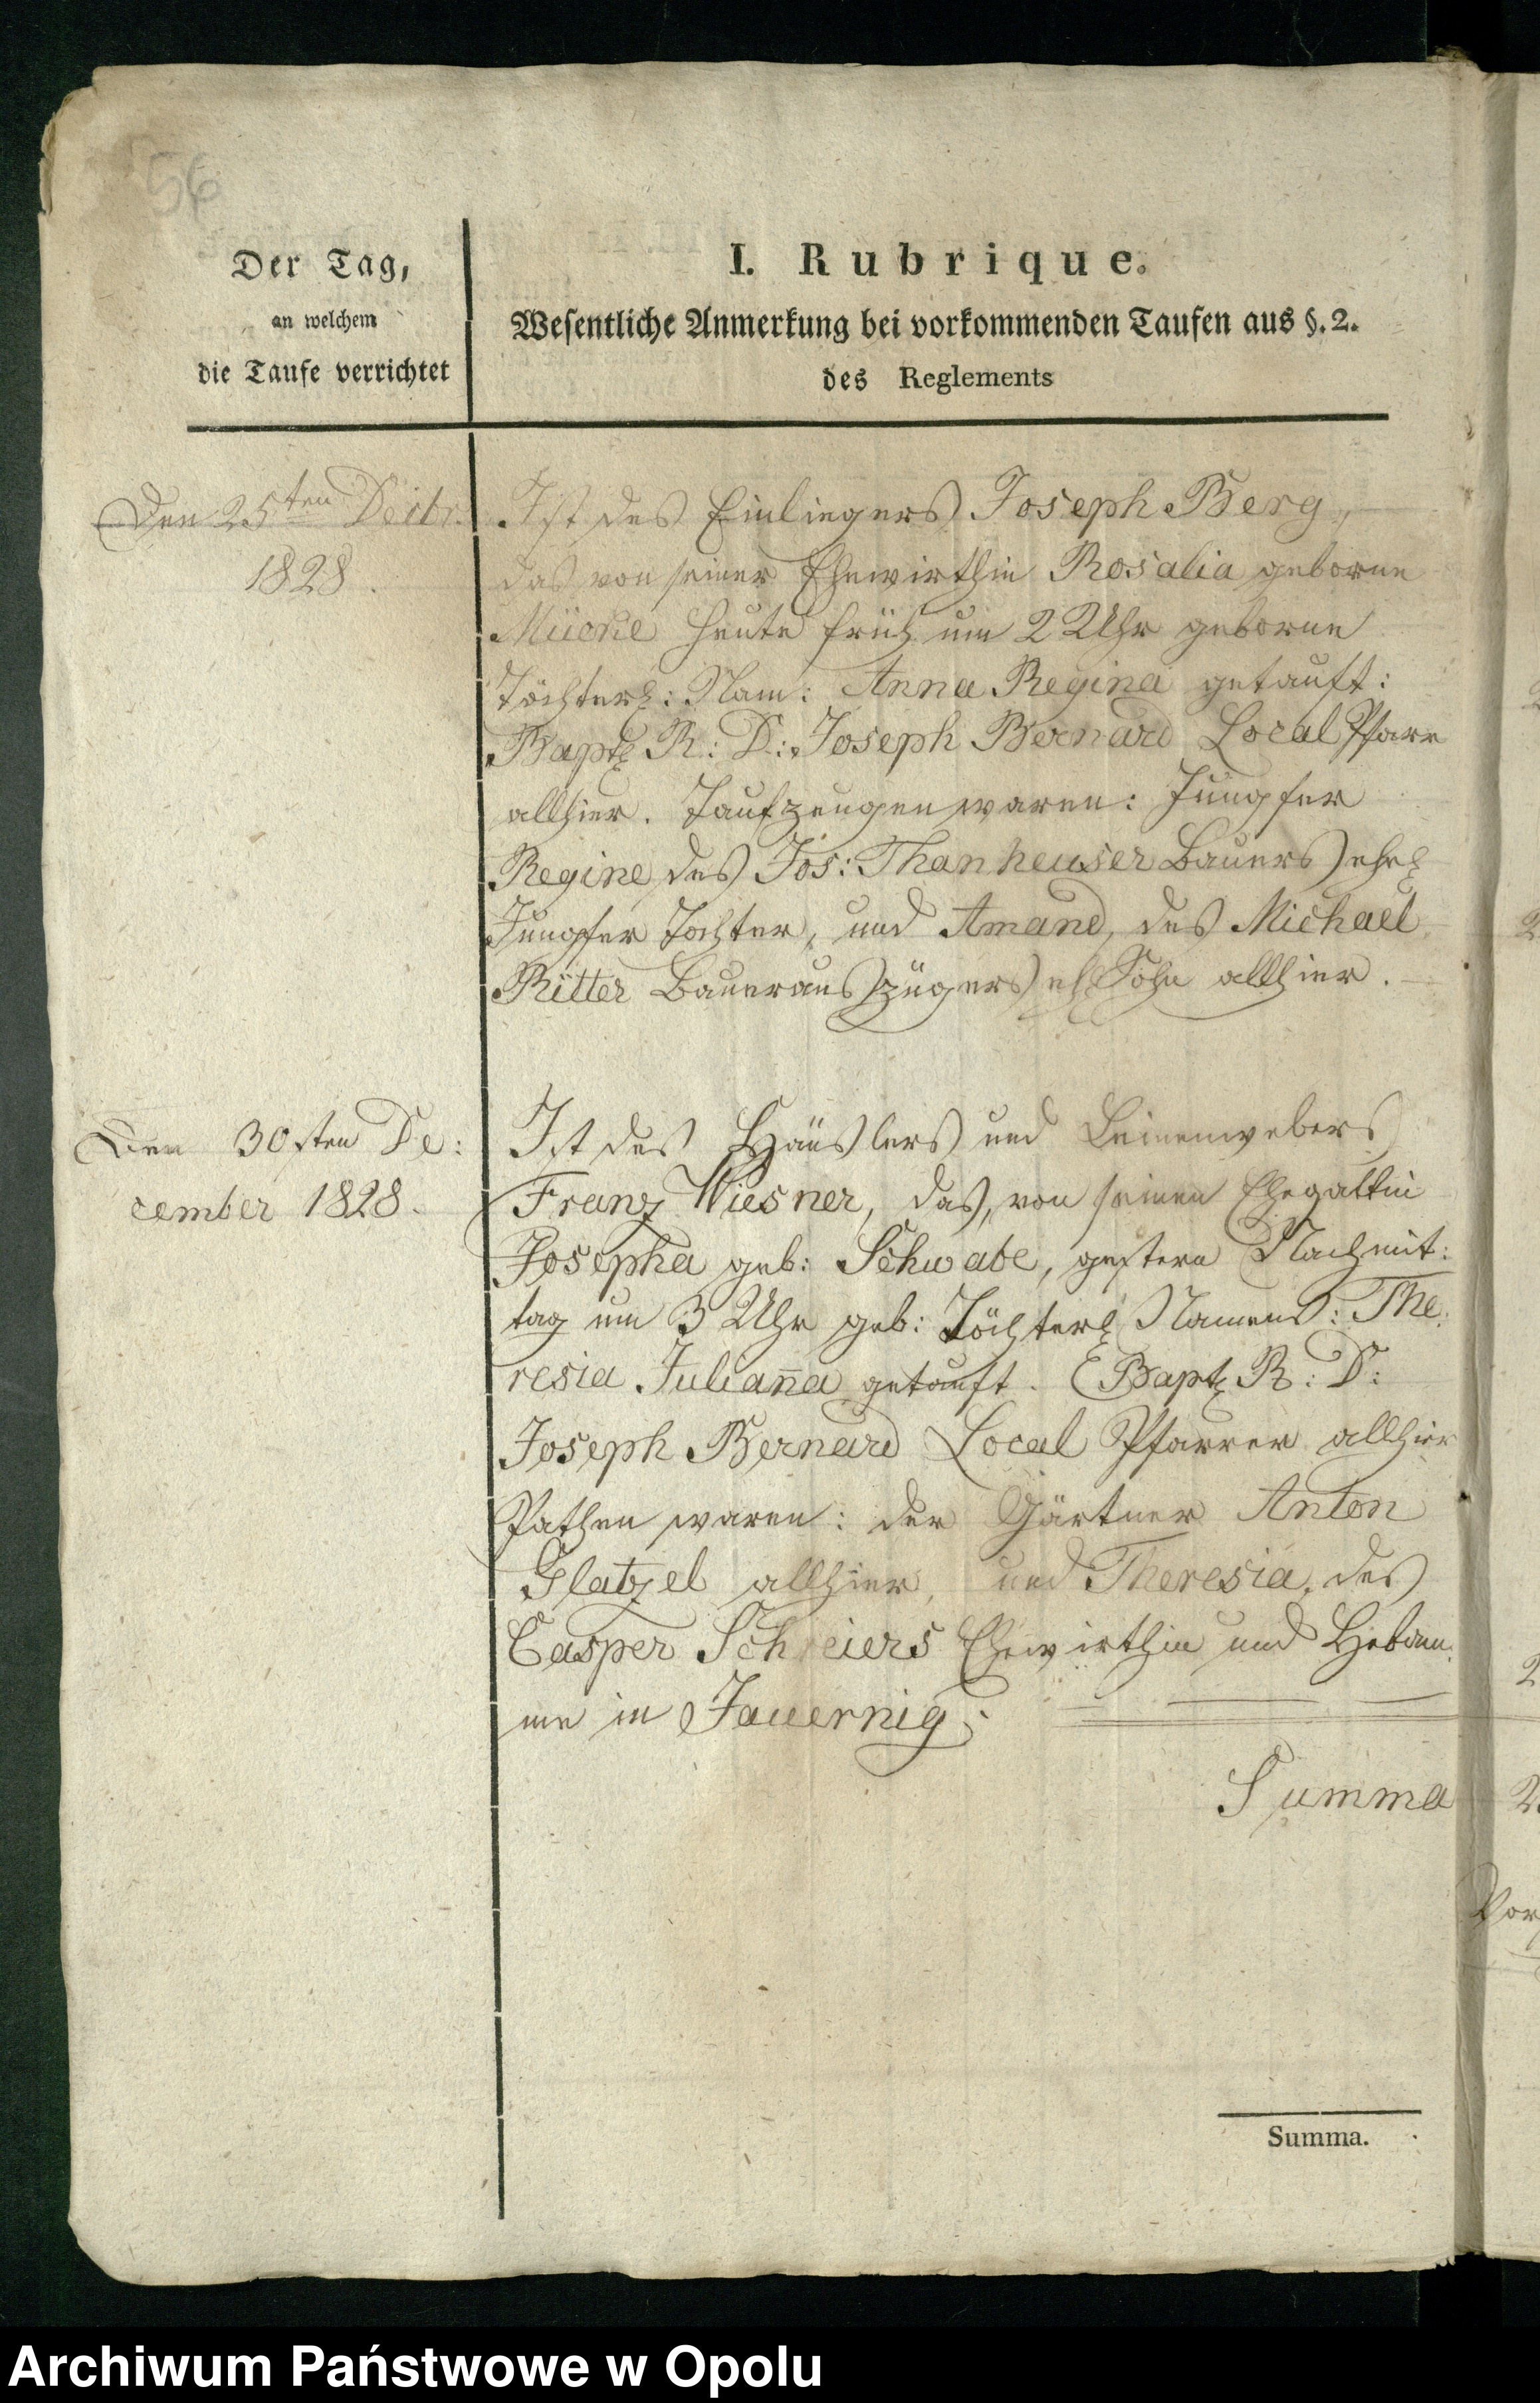 56
Der Tag,
an welchem
die Taufe verrichtet
I. Rubrique.
Wesentliche Anmerkung bei vorkommenden Taufen aus §. 2.
des Reglements
Den 25ten Decbr.
1828.
Ist des Einliegers Joseph Berg,
das von seiner Ehewirthin Rosalia geborne
Mücke heute früh um 2 Uhr geborne
Töchterl: Nam: Anna Regina getauft:
Bapt R: D: Joseph Bernard Local Pfarr
allhier. Taufzeugen waren: Jungfer
Regine des Jos: Thanheuser Bauers ehel
Jungfer Tochter, und Amand, des Michael
Ritter Bauerauszügers ehl Sohn allhier.
Den 30sten De:
cember 1828.
Ist des Häuslers und Leinenwebers
Franz Wiesner, das, von seinen Ehegattin
Josepha geb: Schwabe, gestern Nachmit:
tag um 3 Uhr geb: Töchterl Namens: The:
resia Julian̄a getauft. Bapt R: D:
Joseph Bernard Local Pfarrer allhier
Pathen waren: der Gärtner Anton
Glatzel allhier, und Theresia, des
Casper Schreiers Ehewirthin und Hebam:
me in Jauernig;
Summa 2
Vor
Summa.
Archiwum Państwowe w Opolu